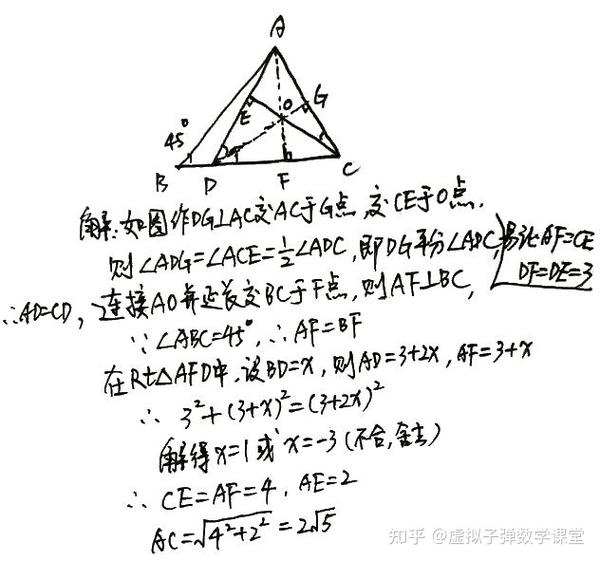 A
E
O
G
45°
B
D
F
C
解:如图作DG⊥AC交AC于G点,交CE于O点.
则∠ADG=∠ACE=½∠ADC,即DG平分∠ADC,易证AF=CE
DF=DE=3
∴AD=CD,连接AO并延长交BC于F点,则AF⊥BC,
∵∠ABC=45°,∴AF=BF
在Rt△AFD中,设BD=x,则AD=3+2x,AF=3+x
∴ 3²+(3+x)²=(3+2x)²
解得x=1或x=-3(不合,舍去)
∴ CE=AF=4,AE=2
AC=√4²+2²=2√5
知乎 @虚拟子弹数学课堂